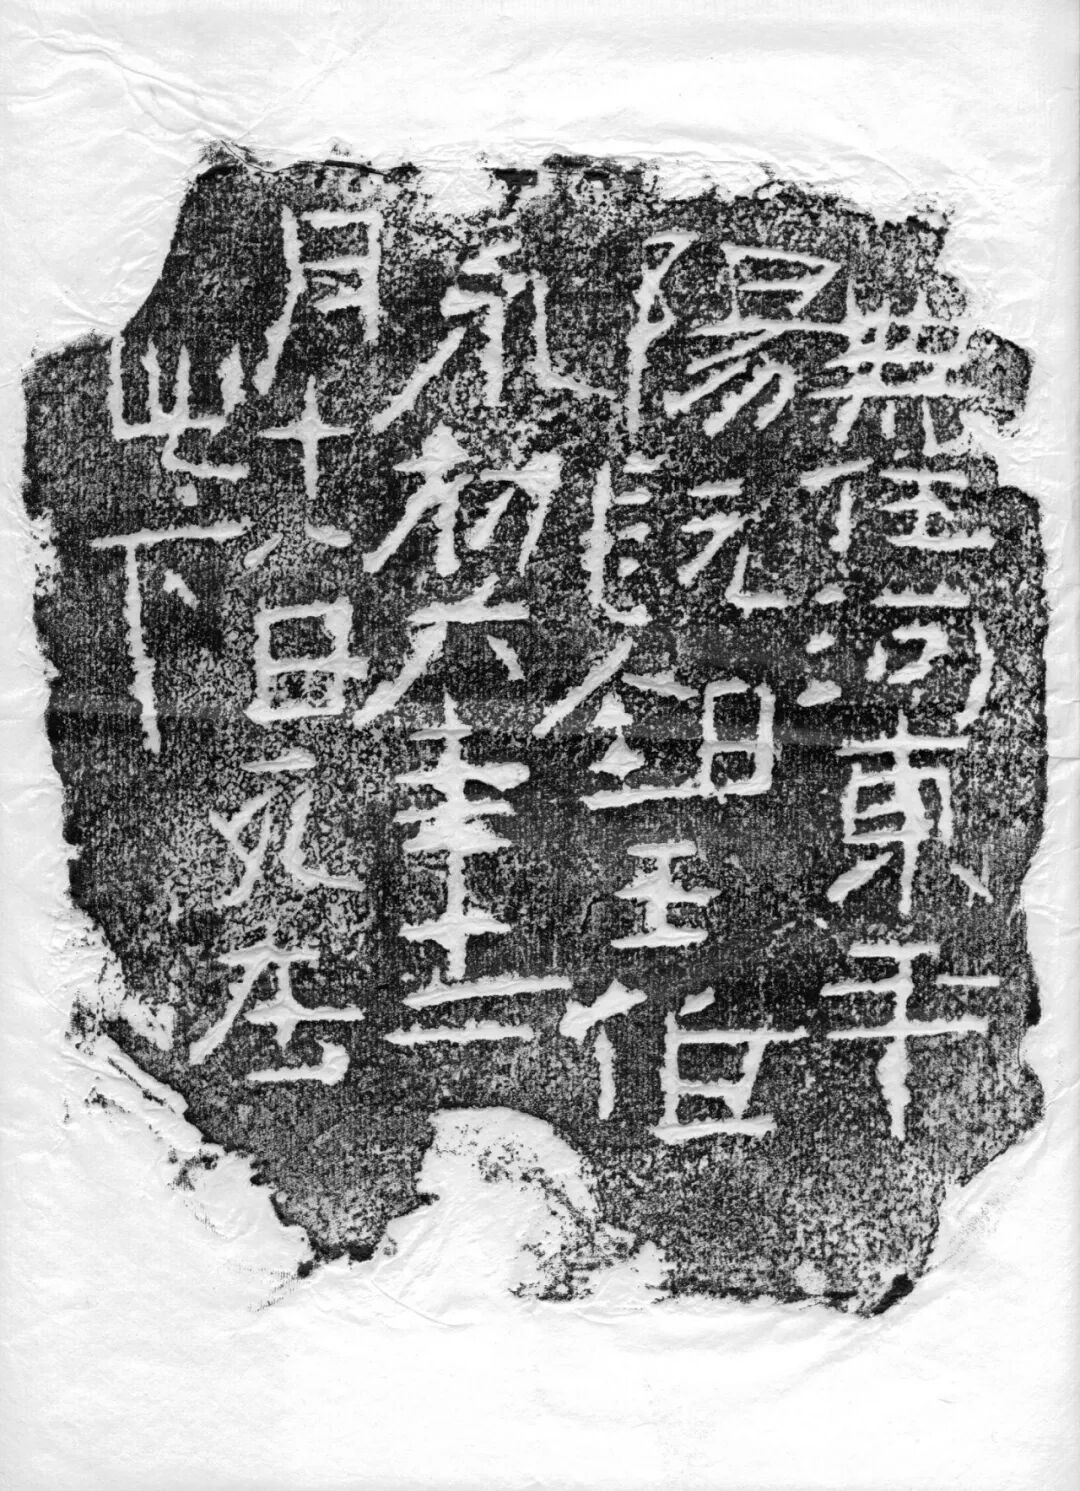 無任河東平
陽髡鉗王伯
永初六年二
月十八日死在
此下